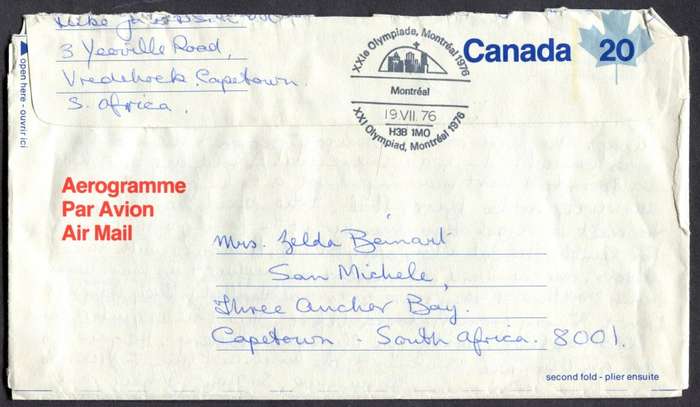 Mike
3 Yeoville Road,
Vredehoek. Capetown.
S. Africa.
open here - ouvrir ici
XXIe Olympiade, Montréal 1976
Montréal
19 VII. 76
H3B 1M0
XXI Olympiad, Montréal 1976
Canada 20
Aerogramme
Par Avion
Air Mail
Mrs. Zelda Beinart
San Michele,
Three Anchor Bay.
Capetown - South Africa. 8001.
second fold - plier ensuite